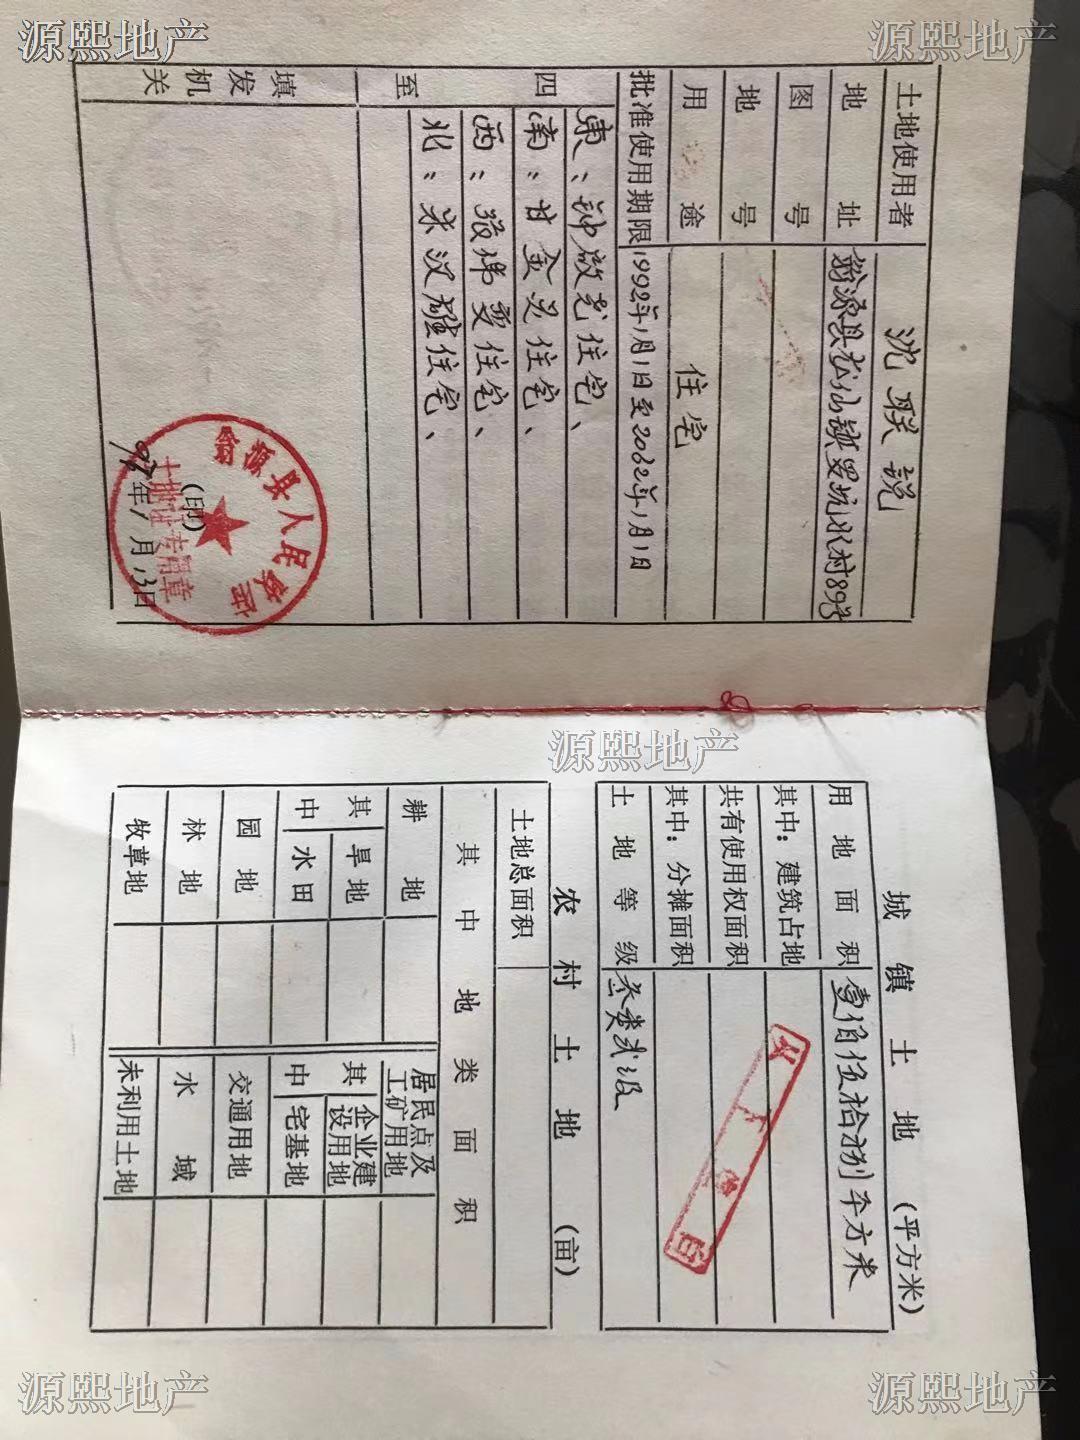 源熙地产
源熙地产
土地使用者 沈联説
地址 翁源县松仙鎮罗坑水村89号
图号
地号
用途 住宅
批准使用期限 1992年1月1日至2062年1月1日
四至
東：钟啟光住宅、
南：甘金 住宅、
西： 住宅、
北：朱汉雄住宅、
填发机关
翁源县人民政府
土地证专用章
(印)
年1月13日
源熙地产
城镇土地 (平方米)
用地面积 壹佰伍拾捌平方米
其中：建筑占地
共有使用权面积
其中：分摊面积
土地等级 叁类贰级
以下 白
农村土地 (亩)
土地总面积
其中地类面积
耕地
居民点及工矿用地
其中
旱地
水田
其中
企业建设用地
宅基地
园地
交通用地
林地
水域
牧草地
未利用土地
源熙地产
源熙地产